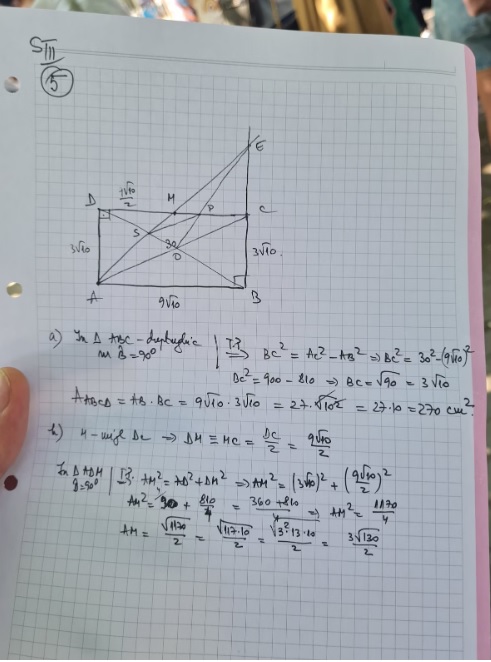 SIII
5
E
D
9√10/2
M
P
C
S
30
O
3√10
3√10.
A
9√10
B
a) În Δ ABC - dreptunghic | T.P. ⇒ BC² = AC² - AB² ⇒ BC² = 30² - (9√10)²
m B̂ = 90°
BC² = 900 - 810 ⇒ BC = √90 = 3√10
A_ABCD = AB · BC = 9√10 · 3√10 = 27 · √10² = 27 · 10 = 270 cm².
b) M - mijl DC ⇒ DM ≡ MC = DC/2 = 9√10/2
În Δ ADM | T.P. AM² = AD² + DM² ⇒ AM² = (3√10)² + (9√10/2)²
D̂ = 90°
AM² = 90 + 810/4 = 360 + 810/4 ⇒ AM² = 1170/4
AM = √1170/2 = √117·10/2 = √3²·13·10/2 = 3√130/2